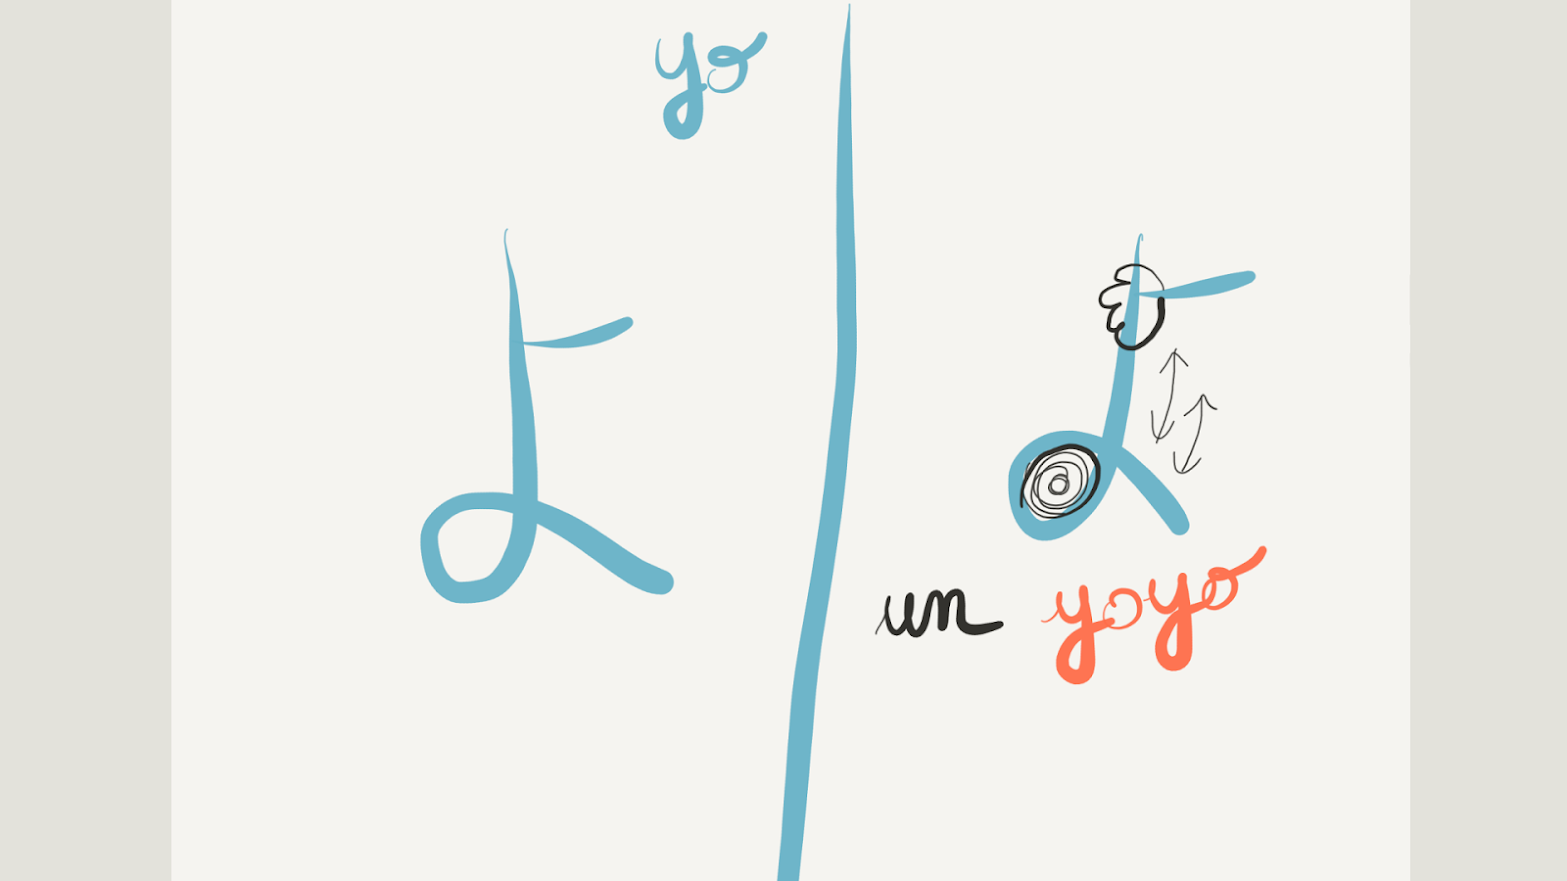 yo
よ
よ
un yoyo